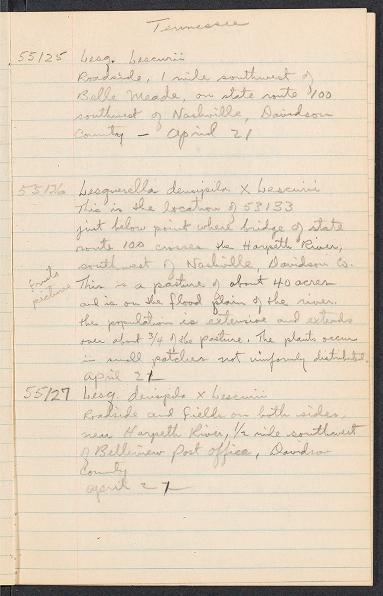 Tennessee
55125 Lesq. Lescurii
Roadside, 1 mile southwest of
Belle Meade, on state route 100
southwest of Nashville, Davidson
County — April 21
55126 Lesquerella densipila x Lescurii
This is the location of 53133
just below point where bridge of state
route 100 crosses the Harpeth River,
southwest of Nashville, Davidson Co.
This is a pasture of about 40 acres
and is on the flood plain of the river.
The population is extensive and extends
over about 3/4 of the pasture. The plants occur
in small patches not uniformly distributed.
April 21
picture
55127 Lesq. densipila x Lescurii
Roadside and fields on both sides
near Harpeth River, 1/2 mile southwest
of Bellevue Post Office, Davidson
County
April 21